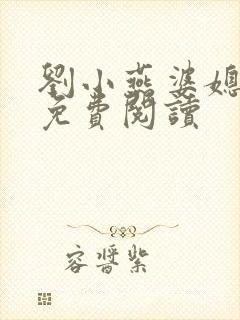 劉小燕婆媳
免費閱讀
容晉紫